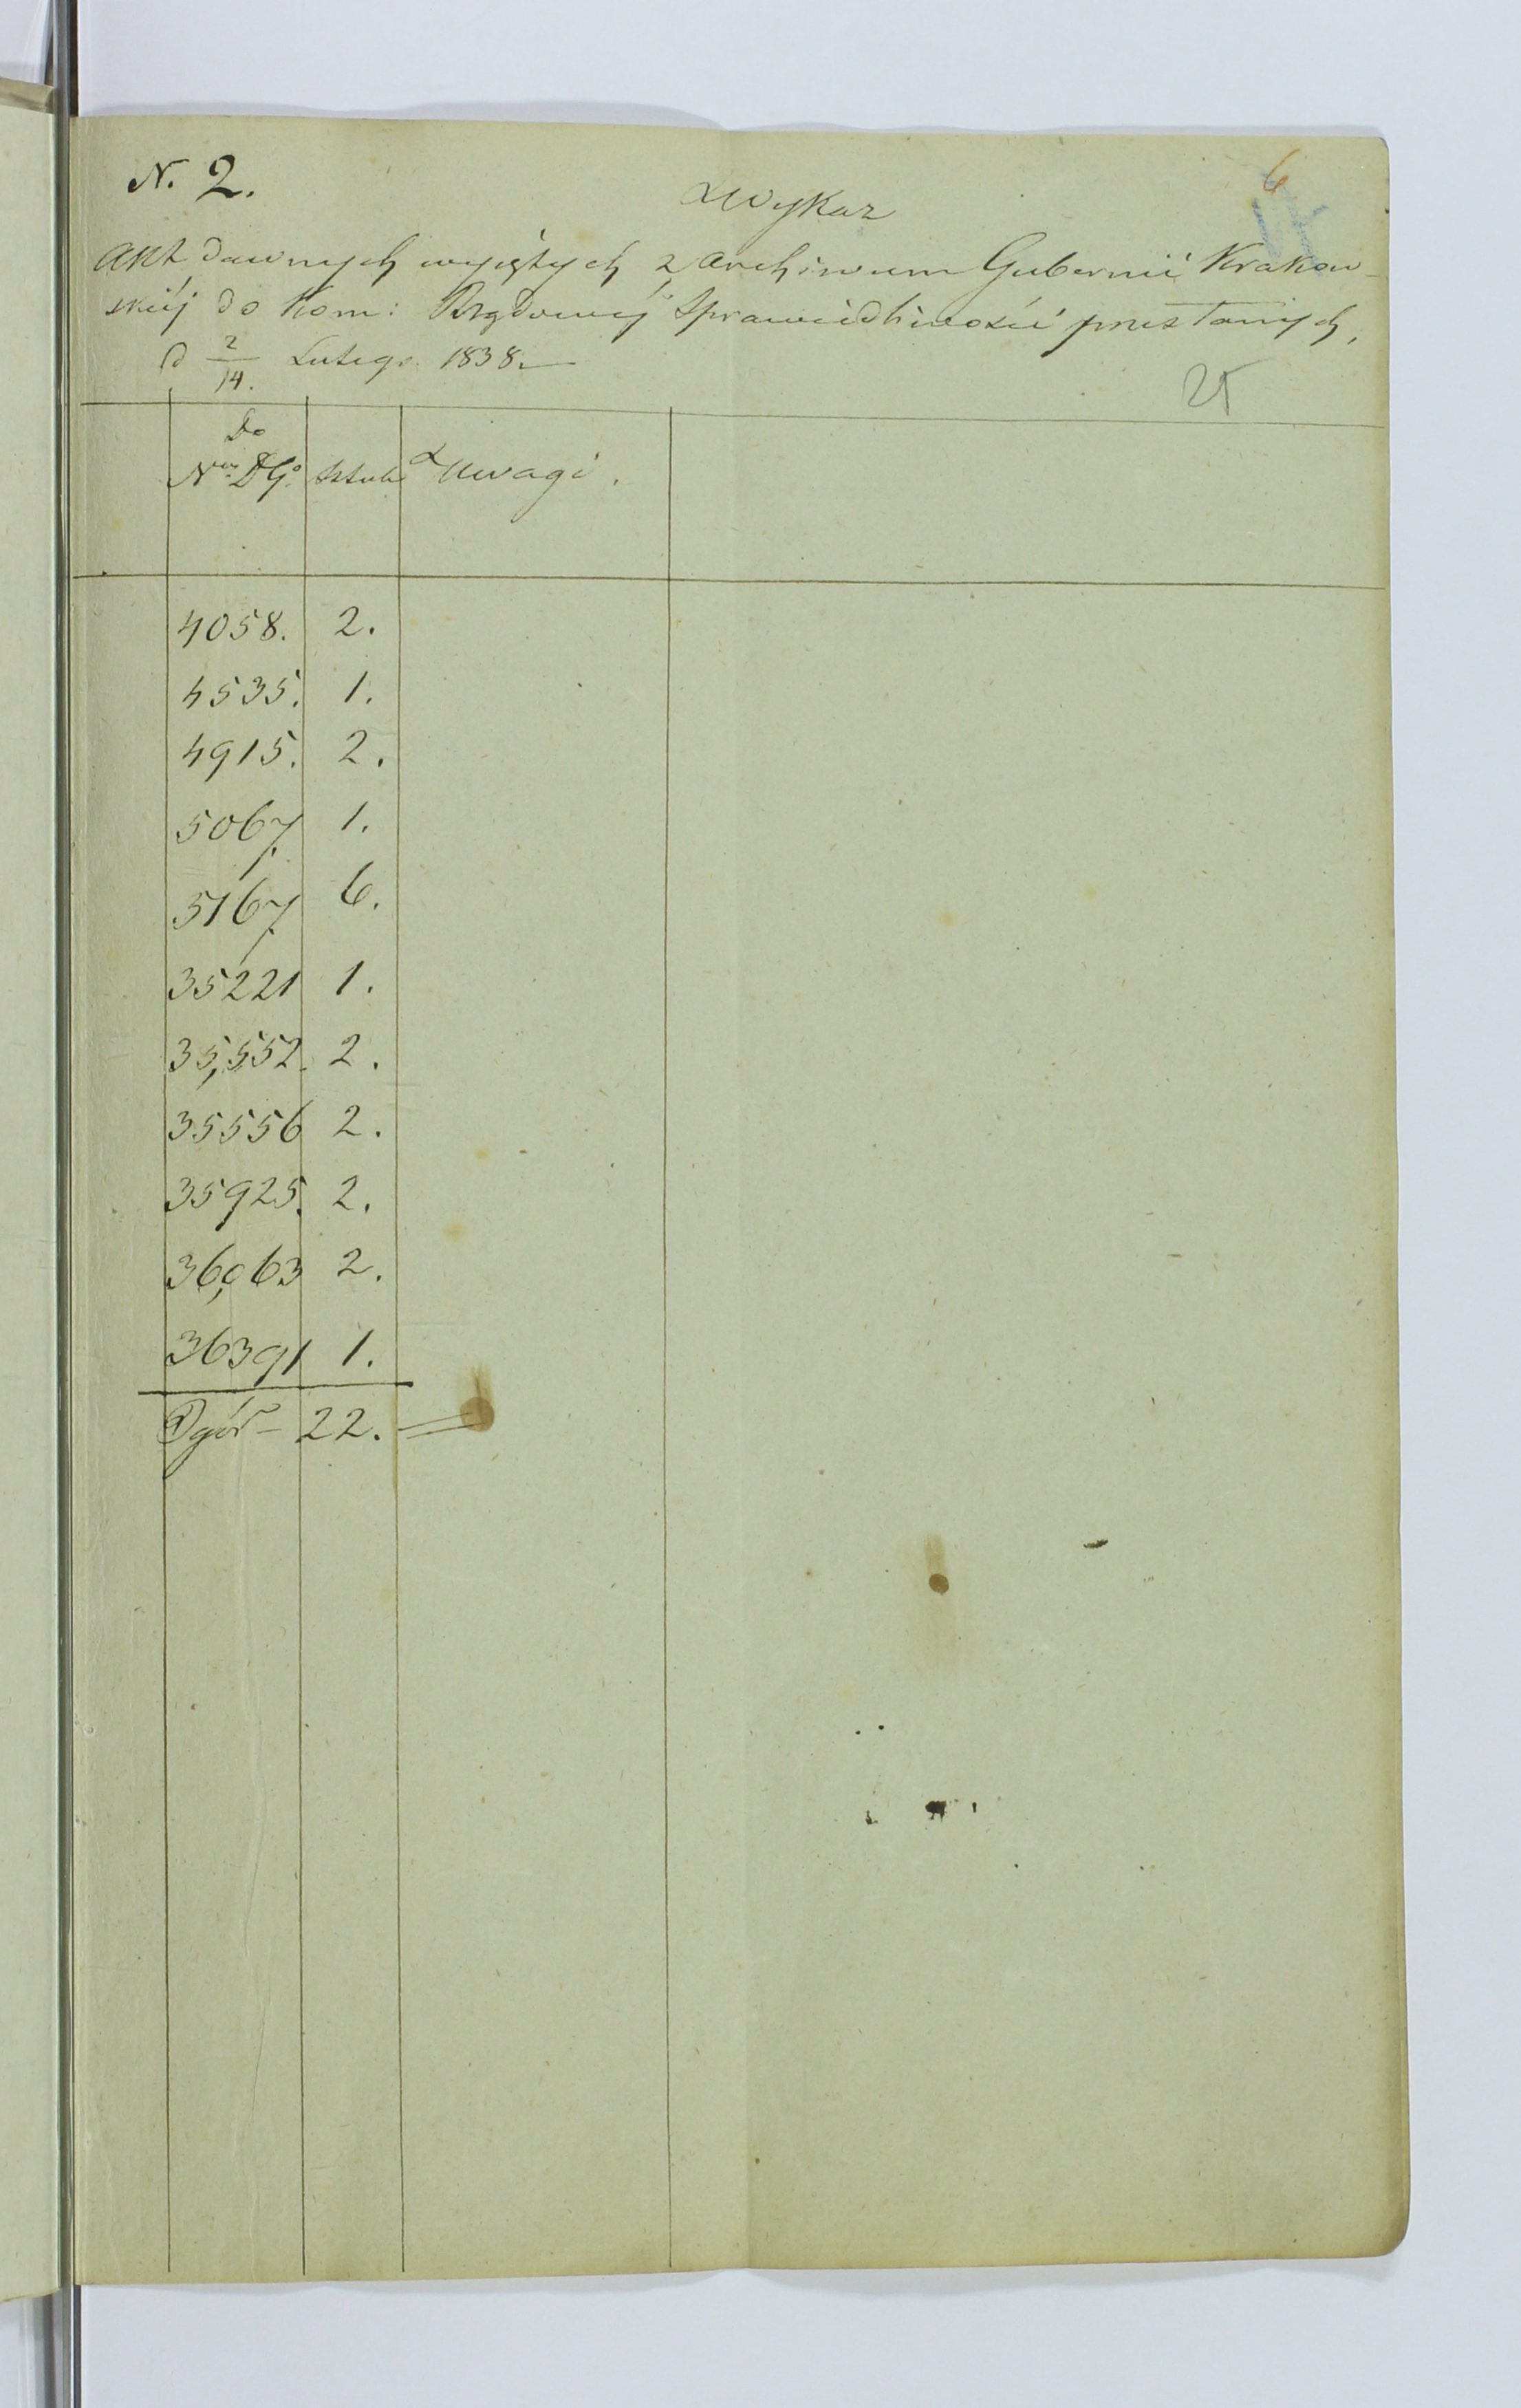 N. 2.
6
Wykaz
Akt dawnych wyiętych z Archiwum Gubernii Krakow-
skiéj do Kom: Rządowéj Sprawiedliwości przesłanych,
d 2/14. Lutego 1838.
25
Do Nru DG. Sztuk Uwagi.
4058. 2.
4535. 1.
4915. 2.
5067. 1.
5167. 6.
35221 1.
35,552. 2.
35556 2.
35925. 2.
36,063 2.
36391 1.
Ogół - 22.